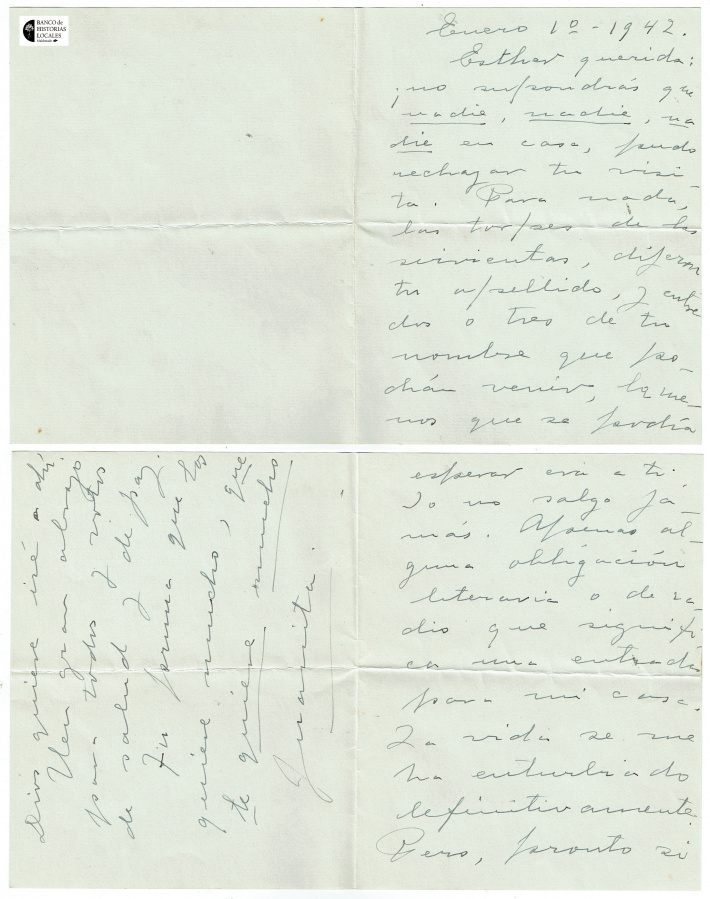 BANCO de
HISTORIAS
LOCALES
Enero 1º - 1942.
Esther querida:
¡no supondrás que
nadie, nadie, na
die en casa, pudo
rechazar tu visi-
ta. Para nada,
las torpes de las
sirvientas, dijeron
tu apellido, y entre
dos o tres de tu
nombre que po-
drían venir, la me-
nos que se podía
esperar era a ti.
Yo no salgo ja-
más. Apenas al-
guna obligación
literaria o de ra-
dio que signifi-
ca una entrada
para mi casa.
La vida se me
ha enturbiado
definitivamente.
Pero, pronto si
Dios quiere iré a ahí.
Un gran abrazo
para todos y votos
de salud y de paz.
Tu prima que los
quiere mucho, que
te quiere mucho
Juanita.